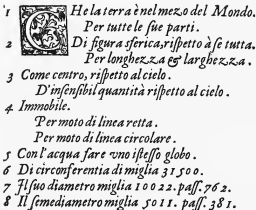 1 CHe la terra è nel mezo del Mondo.
Per tutte le sue parti.
2 Di figura sferica, rispetto à se tutta.
Per longhezza & larghezza.
3 Come centro, rispetto al cielo.
D'insensibil quantità rispetto al cielo.
4 Immobile.
Per moto di linea retta.
Per moto di linea circolare.
5 Con l'acqua fare uno istesso globo.
6 Di circonferentia di miglia 31500.
7 Il suo diametro miglia 10022. pass. 762.
8 Il semediametro miglia 5011. pass. 381.